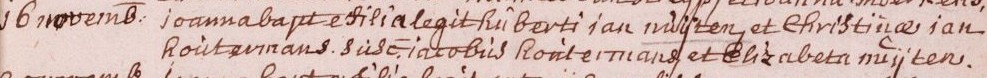 16 novemb: joanna bapt e filia legit huberti jan nuijten et Christinæ jan
houtermans susc: jacobus houtermans et Elizabeta nuijten.